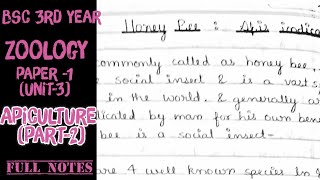 BSC 3RD YEAR
ZOOLOGY
PAPER -1
(UNIT-3)
APICULTURE
(PART-2)
FULL NOTES
Honey Bee : Apis indica
commonly called as honey bee.
social insect & is a vast
in the world. & generally a
icated by man for his own ben
bee is a social insect-
are 4 well known species in